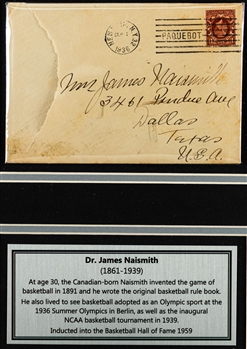 N.Y.
1936
PAQUEBOT
Mrs James Naismith
3461 Purdue Ave
Dallas
Texas
U.S.A.
Dr. James Naismith
(1861-1939)
At age 30, the Canadian-born Naismith invented the game of
basketball in 1891 and he wrote the original basketball rule book.
He also lived to see basketball adopted as an Olympic sport at the
1936 Summer Olympics in Berlin, as well as the inaugural
NCAA basketball tournament in 1939.
Inducted into the Basketball Hall of Fame 1959